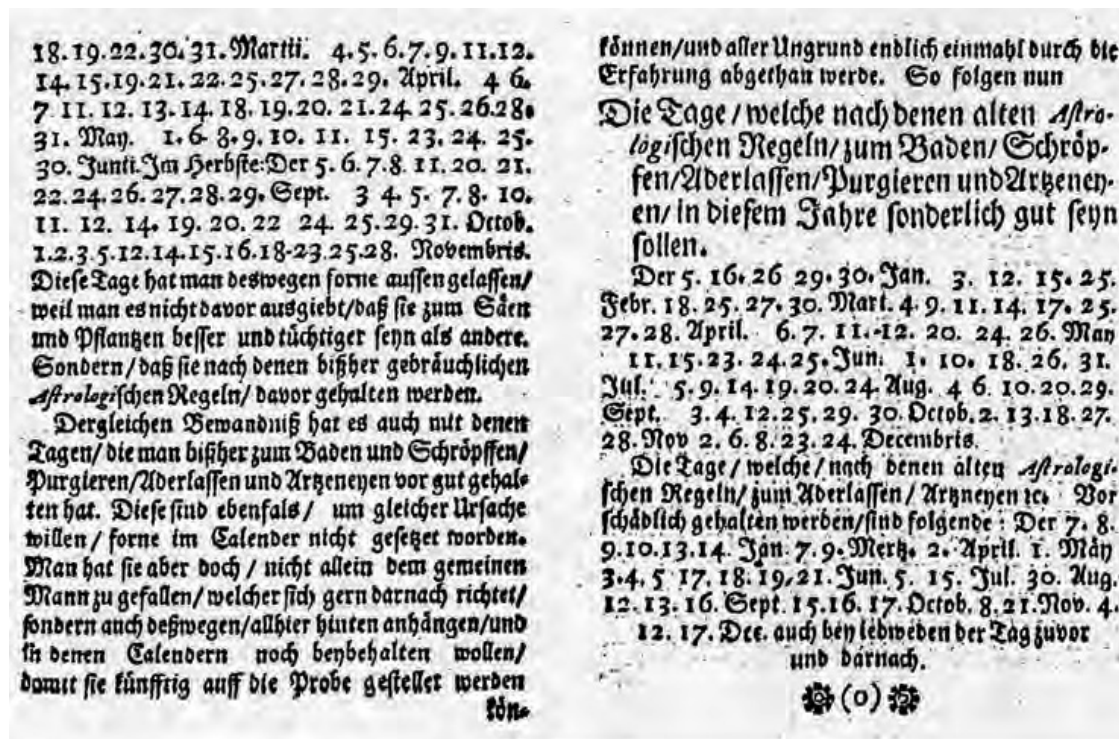 18.19.22.30.31. Martii. 4.5.6.7.9.11.12.
14.15.19.21.22.25.27.28.29. April. 4 6.
7 11. 12. 13.14. 18. 19.20. 21.24 25.26.28.
31. May. 1.6 8.9.10. 11. 15. 23. 24. 25.
30. Junii. Im Herbste: Der 5. 6.7.8. 11. 20. 21.
22.24.26.27.28.29. Sept. 3 4. 5. 7.8. 10.
11. 12. 14. 19. 20. 22 24. 25.29.31. Octob.
1.2.3.5.12.14.15.16.18-23.25.28. Novembris.
Diese Tage hat man deswegen forne aussengelassen/
weil man es nicht davor ausgiebt/daß sie zum Säen
und Pflantzen besser und tüchtiger seyn als andere.
Sondern/daß sie nach denen bißher gebräuchlichen
Astrologischen Regeln/ davor gehalten werden.
Dergleichen Bewandniß hat es auch mit denen
Tagen/ die man bißher zum Baden und Schröpffen/
Purgieren/Aderlassen und Artzeneyen vor gut gehal-
ten hat. Diese sind ebenfals/ um gleicher Ursache
willen/ forne im Calender nicht gesetzet worden.
Man hat sie aber doch/ nicht allein dem gemeinen
Mann zu gefallen/welcher sich gern darnach richtet/
sondern auch deßwegen/allhier hinten anhängen/und
in denen Calendern noch beybehalten wollen/
damit sie künfftig auff die Probe gestellet werden
kön-
können/und aller Ungrund endlich einmahl durch die
Erfahrung abgethan werde. So folgen nun
Die Tage/ welche nach denen alten Astro-
logischen Regeln/ zum Baden/ Schröp-
fen/Aderlassen/Purgieren und Artzeney-
en/ in diesem Jahre sonderlich gut seyn
sollen.
Der 5. 16. 26 29. 30. Jan. 3. 12. 15. 25.
Febr. 18. 25. 27. 30. Mart. 4. 9. 11. 14. 17. 25.
27. 28. April. 6. 7. 11.-12. 20. 24. 26. May
11. 15. 23. 24. 25. Jun. 1. 10. 18. 26. 31.
Jul. 5. 9. 14. 19. 20. 24. Aug. 4 6. 10. 20. 29.
Sept. 3. 4. 12. 25. 29. 30. Octob. 2. 13. 18. 27.
28. Nov 2. 6. 8. 23. 24. Decembris.
Die Tage/ welche/ nach denen alten Astrologi-
schen Regeln/ zum Aderlassen/ Artzneyen ec. Vor
schädlich gehalten werden/sind folgende: Der 7. 8.
9.10.13.14. Jan. 7.9. Mertz. 2. April. 1. May
3.4. 5 17. 18. 19.21. Jun. 5. 15. Jul. 30. Aug.
12. 13. 16. Sept. 15.16. 17. Octob. 8.21. Nov. 4.
12. 17. Dec. auch bey iedweden der Tag zuvor
und darnach.
(0)